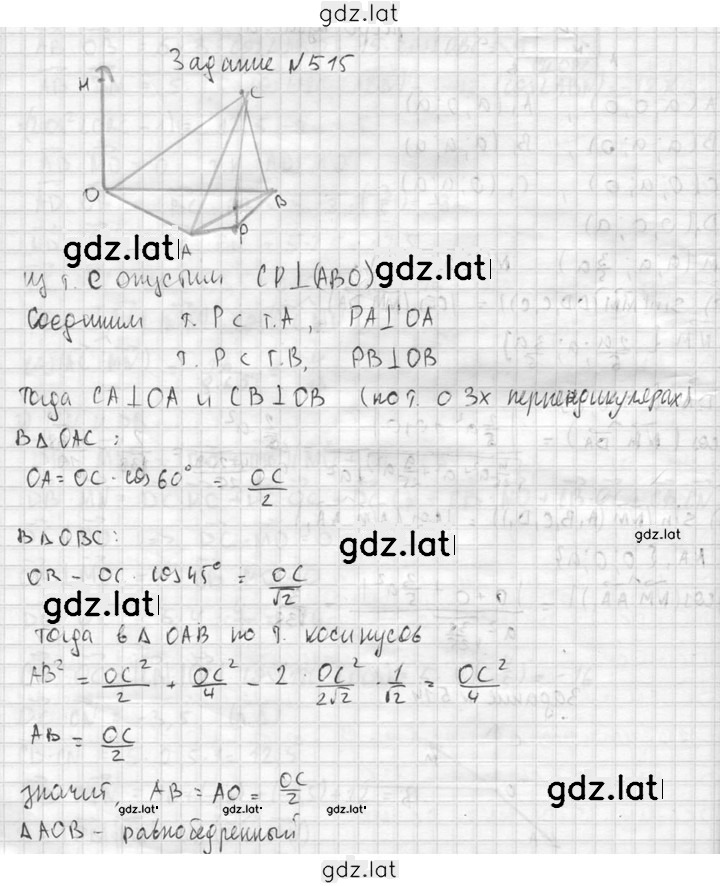 gdz.lat
Задание №515
H
C
O
B
A
P
gdz.lat
gdz.lat
из т. C опустим CP⊥(ABO)
Соединим т. P с т. A, PA⊥OA
т. P с т. B, PB⊥OB
Тогда CA⊥OA и CB⊥OB (по т. о 3х перпендикулярах)
В △OAC:
OA = OC · cos 60° = OC/2
В △OBC:
gdz.lat
gdz.lat
OB = OC · cos 45° = OC/√2
gdz.lat
Тогда в △ OAB по т. косинусов
AB² = OC²/2 + OC²/4 − 2 · OC²/2√2 · 1/√2 = OC²/4
AB = OC/2
значит, AB = AO = OC/2
gdz.lat
gdz.lat
gdz.lat
gdz.lat
△AOB – равнобедренный
gdz.lat